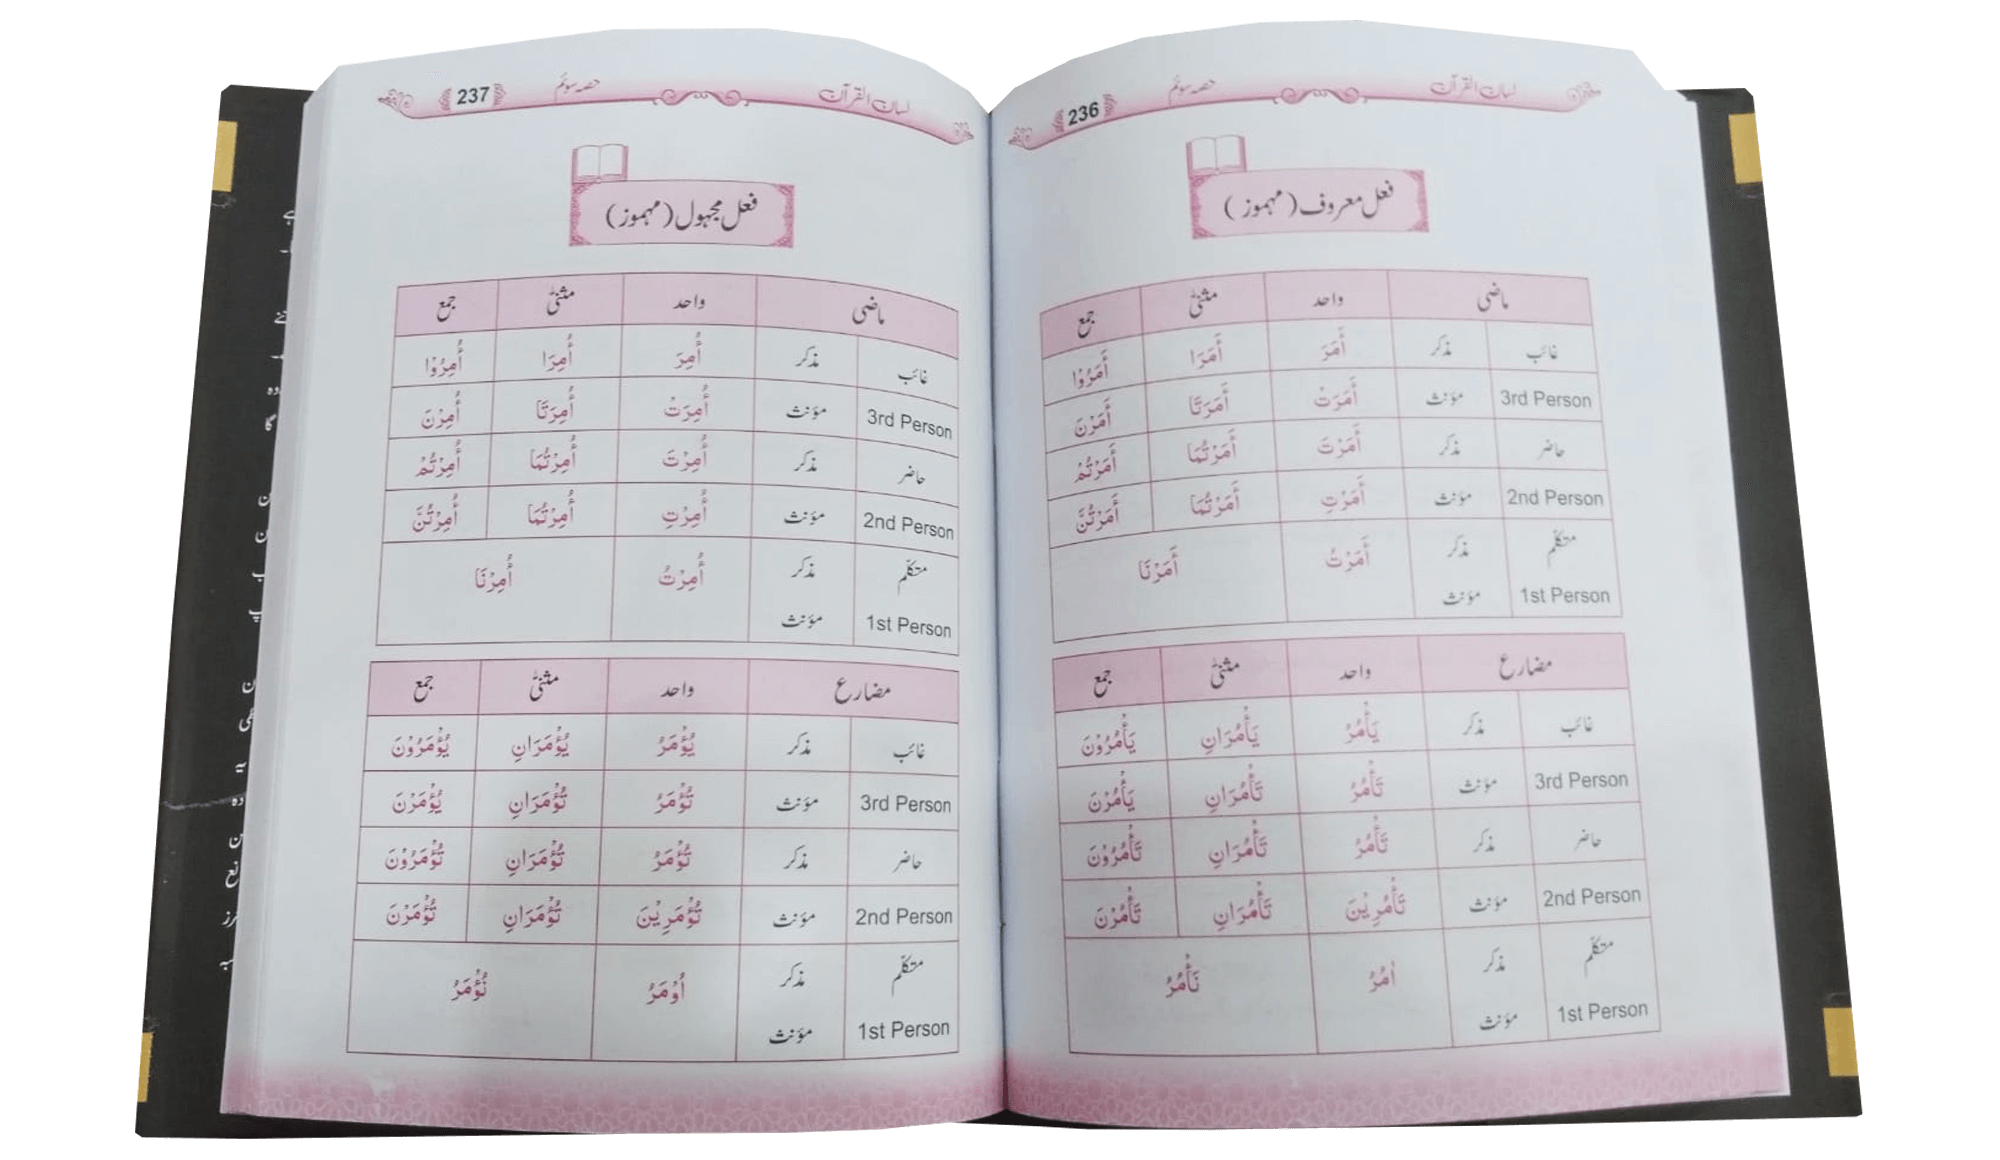 لسان القرآن حصہ سوئم 236
فعل معروف (مہموز)
ماضی واحد مثنیٰ جمع
غائب مذکر أَمَرَ أَمَرَا أَمَرُوْا
3rd Person مؤنث أَمَرَتْ أَمَرَتَا أَمَرْنَ
حاضر مذکر أَمَرْتَ أَمَرْتُمَا أَمَرْتُمْ
2nd Person مؤنث أَمَرْتِ أَمَرْتُمَا أَمَرْتُنَّ
متکلّم مذکر أَمَرْتُ أَمَرْنَا
1st Person مؤنث
مضارع واحد مثنیٰ جمع
غائب مذکر يَأْمُرُ يَأْمُرَانِ يَأْمُرُوْنَ
3rd Person مؤنث تَأْمُرُ تَأْمُرَانِ يَأْمُرْنَ
حاضر مذکر تَأْمُرُ تَأْمُرَانِ تَأْمُرُوْنَ
2nd Person مؤنث تَأْمُرِيْنَ تَأْمُرَانِ تَأْمُرْنَ
متکلّم مذکر اٰمُرُ نَأْمُرُ
1st Person مؤنث
لسان القرآن حصہ سوئم 237
فعل مجہول (مہموز)
ماضی واحد مثنیٰ جمع
غائب مذکر أُمِرَ أُمِرَا أُمِرُوْا
3rd Person مؤنث أُمِرَتْ أُمِرَتَا أُمِرْنَ
حاضر مذکر أُمِرْتَ أُمِرْتُمَا أُمِرْتُمْ
2nd Person مؤنث أُمِرْتِ أُمِرْتُمَا أُمِرْتُنَّ
متکلّم مذکر أُمِرْتُ أُمِرْنَا
1st Person مؤنث
مضارع واحد مثنیٰ جمع
غائب مذکر يُؤْمَرُ يُؤْمَرَانِ يُؤْمَرُوْنَ
3rd Person مؤنث تُؤْمَرُ تُؤْمَرَانِ يُؤْمَرْنَ
حاضر مذکر تُؤْمَرُ تُؤْمَرَانِ تُؤْمَرُوْنَ
2nd Person مؤنث تُؤْمَرِيْنَ تُؤْمَرَانِ تُؤْمَرْنَ
متکلّم مذکر اُوْمَرُ نُؤْمَرُ
1st Person مؤنث